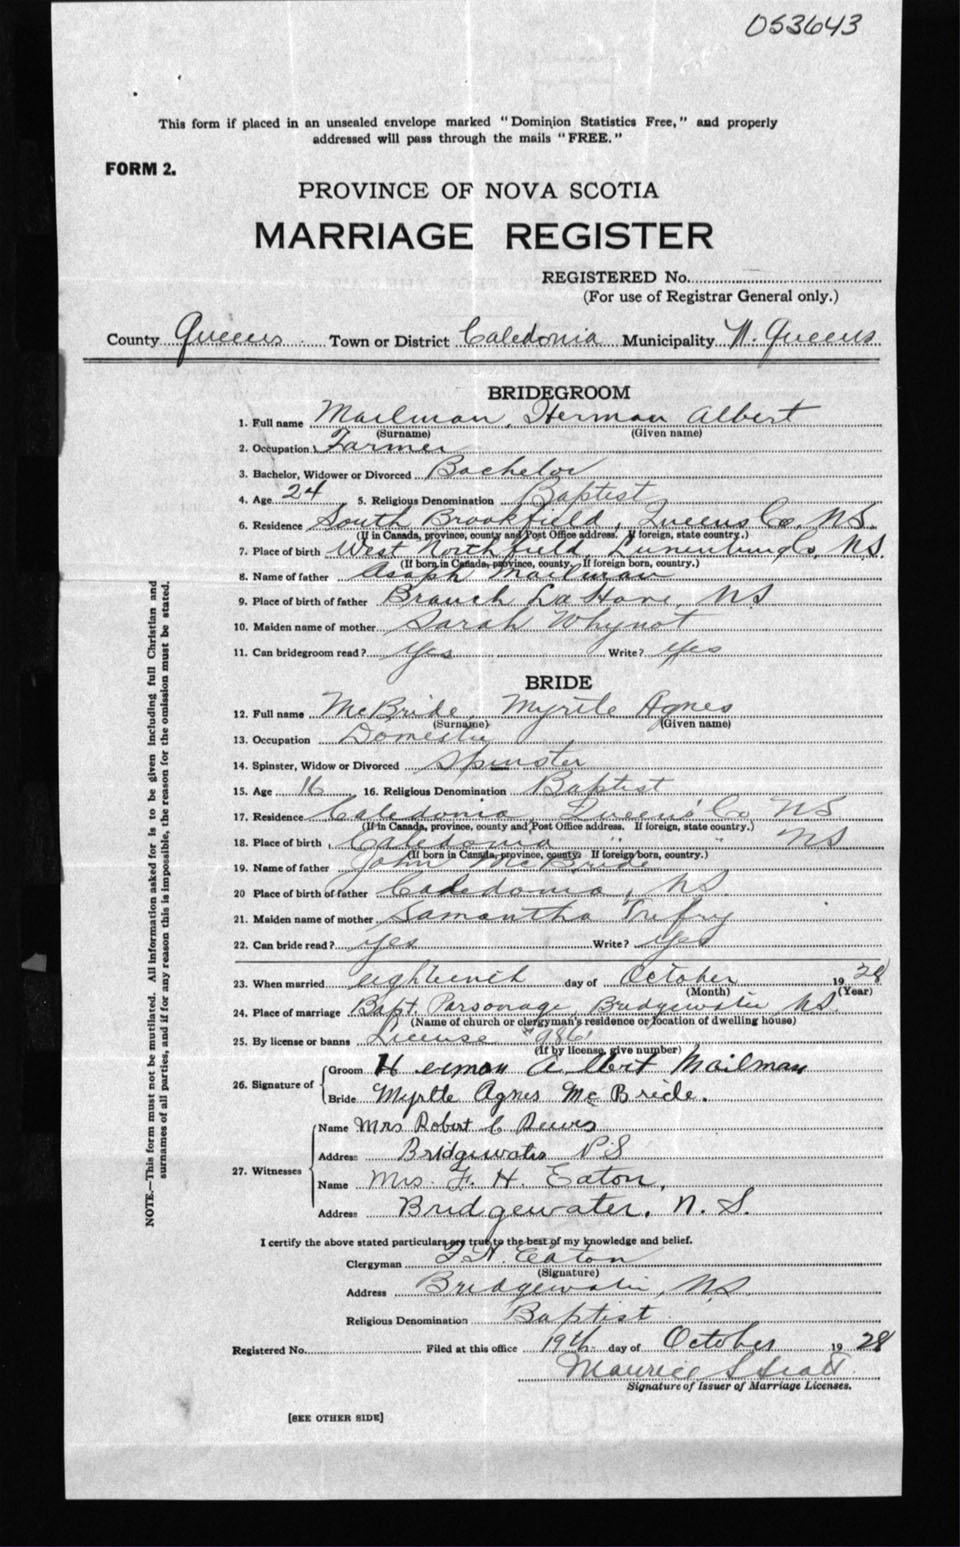 053643
This form if placed in an unsealed envelope marked "Dominion Statistics Free," and properly
addressed will pass through the mails "FREE."
FORM 2.
PROVINCE OF NOVA SCOTIA
MARRIAGE REGISTER
REGISTERED No.
(For use of Registrar General only.)
County Queens Town or District Caledonia Municipality N. Queens
BRIDEGROOM
1. Full name Mailman, Herman Albert
(Surname) (Given name)
2. Occupation Farmer
3. Bachelor, Widower or Divorced Bachelor
4. Age 24 5. Religious Denomination Baptist
6. Residence South Brookfield, Queens Co. N.S.
(If in Canada, province, county and Post Office address. If foreign, state country.)
7. Place of birth West Northfield, Lunenburg Co. N.S.
(If born in Canada, province, county. If foreign born, country.)
8. Name of father Asaph Mailman
9. Place of birth of father Branch LaHave, N.S
10. Maiden name of mother Sarah Whynot
11. Can bridegroom read? Yes Write? Yes
BRIDE
12. Full name McBride, Myrtle Agnes
(Surname) (Given name)
13. Occupation Domestic
14. Spinster, Widow or Divorced Spinster
15. Age 16 16. Religious Denomination Baptist
17. Residence Caledonia, Queens Co NS
(If in Canada, province, county and Post Office address. If foreign, state country.)
18. Place of birth Caledonia " " NS
(If born in Canada, province, county. If foreign born, country.)
19. Name of father John McBride
20 Place of birth of father Caledonia, NS
21. Maiden name of mother Samantha Trefry
22. Can bride read? Yes Write? Yes
23. When married eighteenth day of October 1928
(Month) (Year)
24. Place of marriage Bapt. Parsonage, Bridgewater N.S.
(Name of church or clergyman's residence or location of dwelling house)
25. By license or banns License
(If by license, give number)
26. Signature of Groom Herman Albert Mailman
Bride Myrtle Agnes McBride.
27. Witnesses Name Mrs Robert C
Address Bridgewater
Name Mrs. F. H. Eaton,
Address Bridgewater, N. S.
I certify the above stated particulars are true to the best of my knowledge and belief.
Clergyman F. H. Eaton
(Signature)
Address Bridgewater, N.S.
Religious Denomination Baptist
Registered No. Filed at this office 19th day of October 1928
Maurice S
Signature of Issuer of Marriage Licenses.
[SEE OTHER SIDE]
NOTE.—This form must not be mutilated. All information asked for is to be given including full Christian and
surnames of all parties, and if for any reason this is impossible, the reason for the omission must be stated.